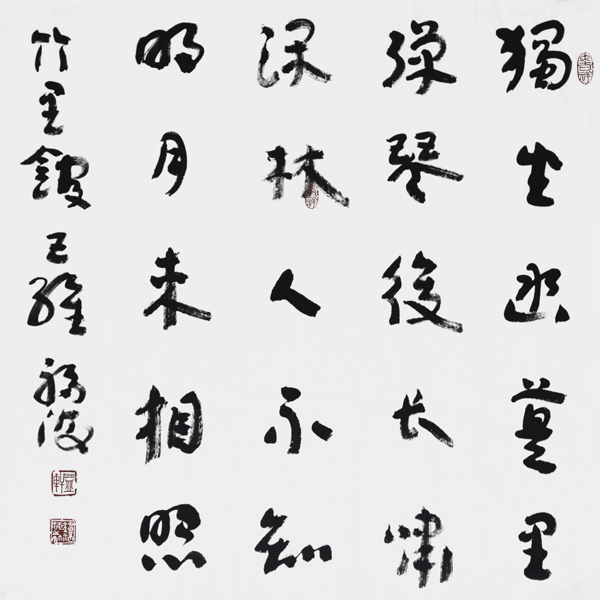 獨坐幽篁里
彈琴復长嘯
深林人不知
明月来相照
竹里館 王維